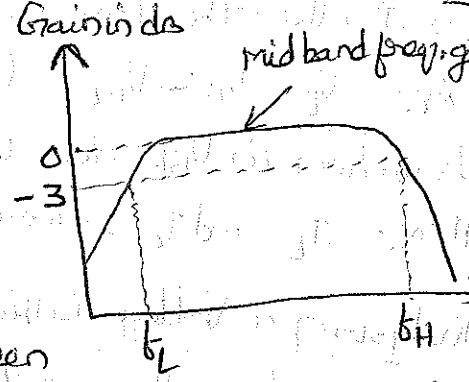 Gain in dB
Midband freq. g
0
-3
fL
fH
en